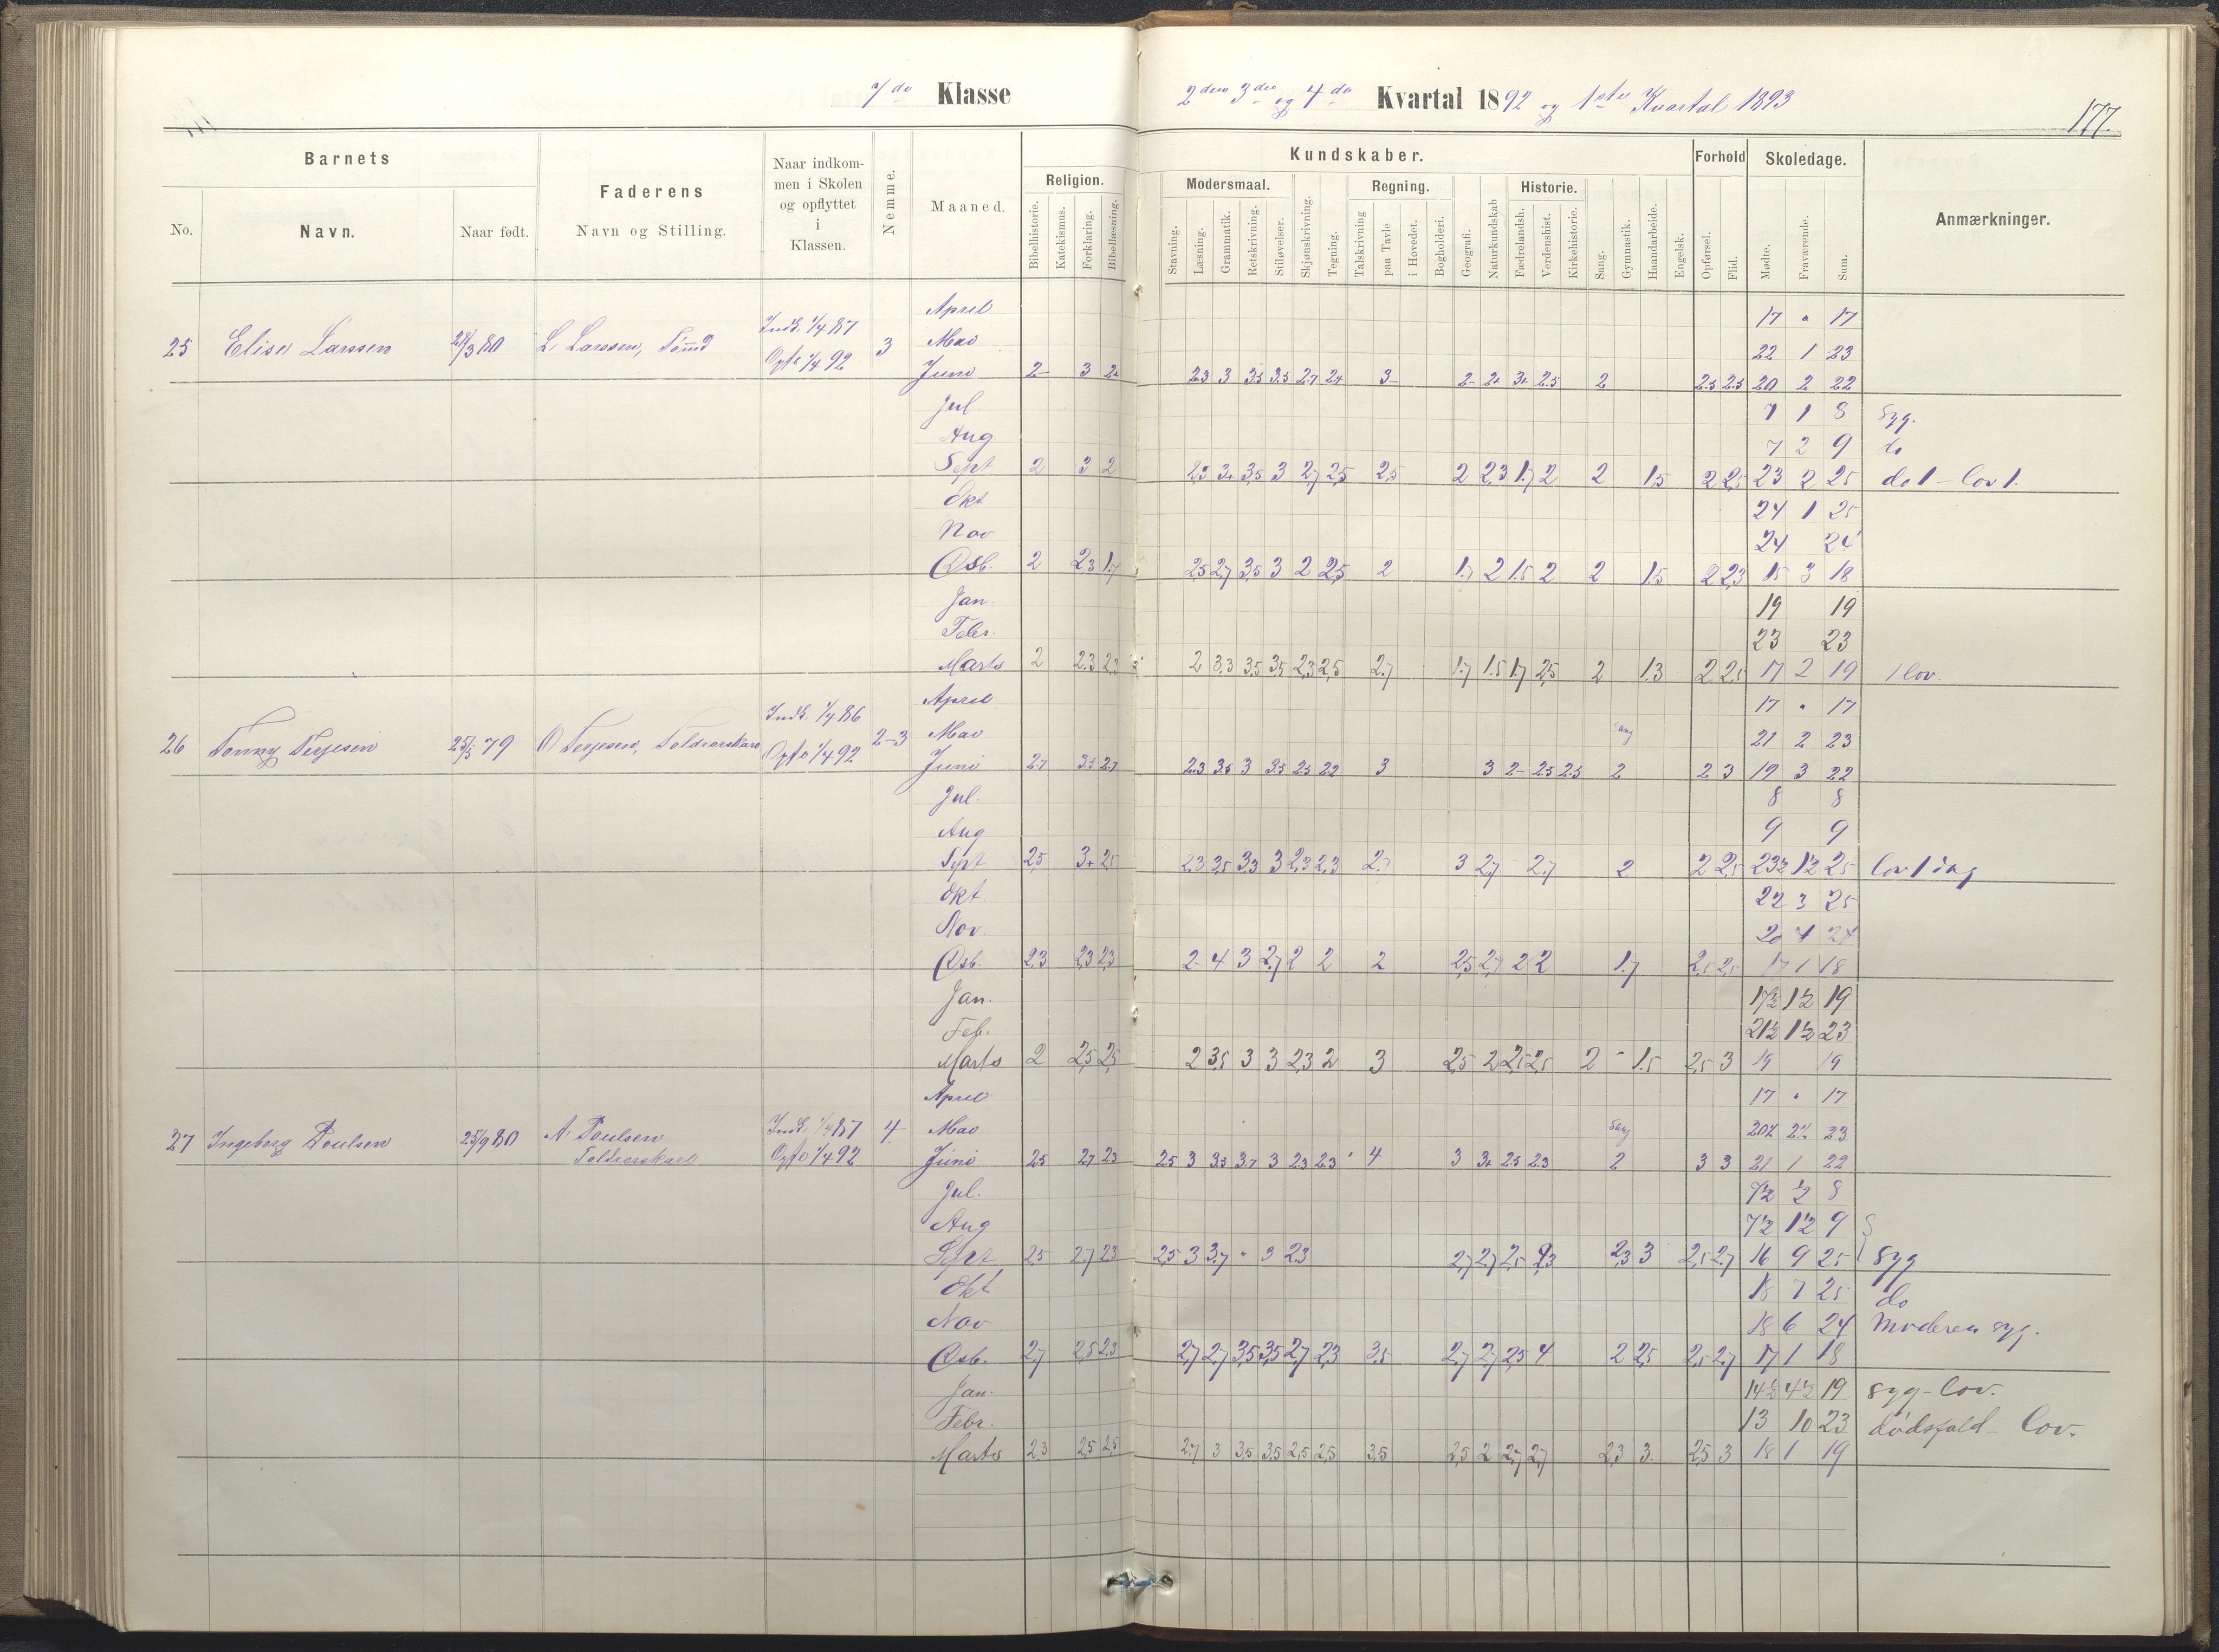 7de Klasse
2den 3die og 4de Kvartal 1892 og 1ste Kvartal 1893
177.
Barnets
Faderens
Naar indkommen i Skolen og opflyttet i Klassen.
Nemme.
Maaned.
Religion.
Kundskaber.
Modersmaal.
Regning.
Historie.
Forhold
Skoledage.
Anmærkninger.
No.
Navn.
Naar født.
Navn og Stilling.
Bibelhistorie.
Katekismus.
Forklaring.
Bibellæsning.
Stavning.
Læsning.
Grammatik.
Retskrivning.
Stiløvelser.
Skjønskrivning.
Tegning.
Talskrivning
paa Tavle
i Hovedet.
Bogholderi.
Geografi.
Naturkundskab
Fædrelandsh.
Verdenshist.
Kirkehistorie.
Sang.
Gymnastik.
Haandarbeide.
Engelsk.
Opførsel.
Flid.
Mødte.
Fraværende.
Sum.
April 17 " 17
25 Elise Larssen 28/3 80 L. Larssen, Indk. 1/4 87 3 Mai 22 1 23
Opfl 1/4 92 Juni 2- 3 2+ 2.3 3 3.5 3.5 2.7 2.4 3- 2- 2+ 3+ 2.5 2 2.5 2.5 20 2 22
Jul 7 1 8 Syg.
Aug 7 2 9 do
Sept 2 3 2 2,5 3+ 3,5 3 2,7 2,5 2,5 2 2,3 1.7 2 2 1.5 2 2,5 23 2 25 do 1 - lov 1.
Okt 24 1 25
Nov 24 24
Dsb. 2 2.3 1.7 2.5 2,7 3,5 3 2 2,5 2 1.7 2 1.5 2 2 1.5 2 2,3 15 3 18
Jan. 19 19
Febr. 23 23
Marts 2 2.3 2,3 2 3,3 3,5 3,5 2,3 2,5 2.7 1.7 1.5 1.7 2,5 2 1.3 2 2,5 17 2 19 1 lov.
April 17 " 17
26 Tonny Terjesen 25/5 79 O Terjesen, Toldrorskarl Indk. 1/4 86 2-3 Mai 21 2 23
Opfl 1/4 92 Juni 2.7 3.5 2.7 2.3 3.5 3 3.5 2.5 2.2 3 3 2- 2.5 2.5 2 2 3 19 3 22
Jul. 8 8
Aug 9 9
Sept 2,5 3+ 2,5 2.3 3,5 3.3 3 2,3 2,3 2.7 3 2,7 2.7 2 2 2,5 23½ 1½ 25 lov 1 dag
Okt. 22 3 25
Nov. 20 4 24
Dsb. 2,3 2,3 2,3 2- 4 3 2,7 2 2 2 2,5 2,7 2 2 1.7 2,5 2,5 17 1 18
Jan. 17½ 1½ 19
Feb. 21½ 1½ 23
Marts 2 2,5 2,5 2 3.5 3 3 2,3 2 3 2,5 2 2,5 2,5 2 - 1.5 2,5 3 19 19
April 17 " 17
27 Ingeborg Poulsen 25/9 80 A Poulsen Indk. 1/4 87 4 Mai Sang 20½ 2½ 23
Toldrorskarl Opfl 1/4 92 Juni 2.5 2.7 2.3 2.5 3 3.5 3.7 3 2.3 2.3 4 3 3+ 2.5 2.3 2 3 3 21 1 22
Jul. 7½ ½ 8
Aug 7½ 1½ 9
Sept 2,5 2.7 2,3 2,5 3 3.7 " 3 2.3 2,7 2,7 2,5 2,3 2,3 3 2,5 2,7 16 9 25 syg
Okt 18 7 25 do
Nov 18 6 24 Moderen syg.
Dsb. 2,7 2,5 2.3 2,7 2,7 3,5 3,5 2,7 2,3 3.5 2,7 2,7 2,5 4 2 2,5 2,5 2,7 17 1 18
Jan. 14½ 4½ 19 syg-lov.
Febr. 13 10 23 dødsfald - lov.
Marts 2,3 2,5 2,5 2,7 3 3,5 3.5 2,5 2,5 3,5 2,5 2 2,7 2,7 2,3 3 2,5 3 18 1 19